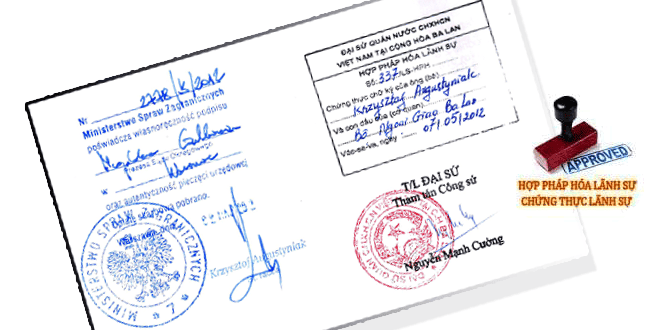 Nr 2778/K/2012
Ministerstwo Spraw Zagranicznych
poświadcza własnoręczność podpisu
Magdalena
Prezesa Sądu Okręgowego
w Warszawie
oraz autentyczność pieczęci urzędowej
pobrano.
Warszawa, dnia
Krzysztof Augustyniak
MINISTERSTWO SPRAW ZAGRANICZNYCH
* 7 *
ĐẠI SỨ QUÁN NƯỚC CHXHCN
VIỆT NAM TẠI CỘNG HÒA BA LAN
HỢP PHÁP HÓA LÃNH SỰ
Số: 337/LS-HPH
Chứng thực chữ ký của ông (bà)
Krzysztof Augustyniak
Và con dấu của (cơ quan)
Bộ Ngoại Giao Ba Lan
Vác-sa-va, ngày 07/05/2012
T/L ĐẠI SỨ
Tham tán Công sứ
Nguyễn Mạnh Cường
APPROVED
HỢP PHÁP HÓA LÃNH SỰ
CHỨNG THỰC LÃNH SỰ